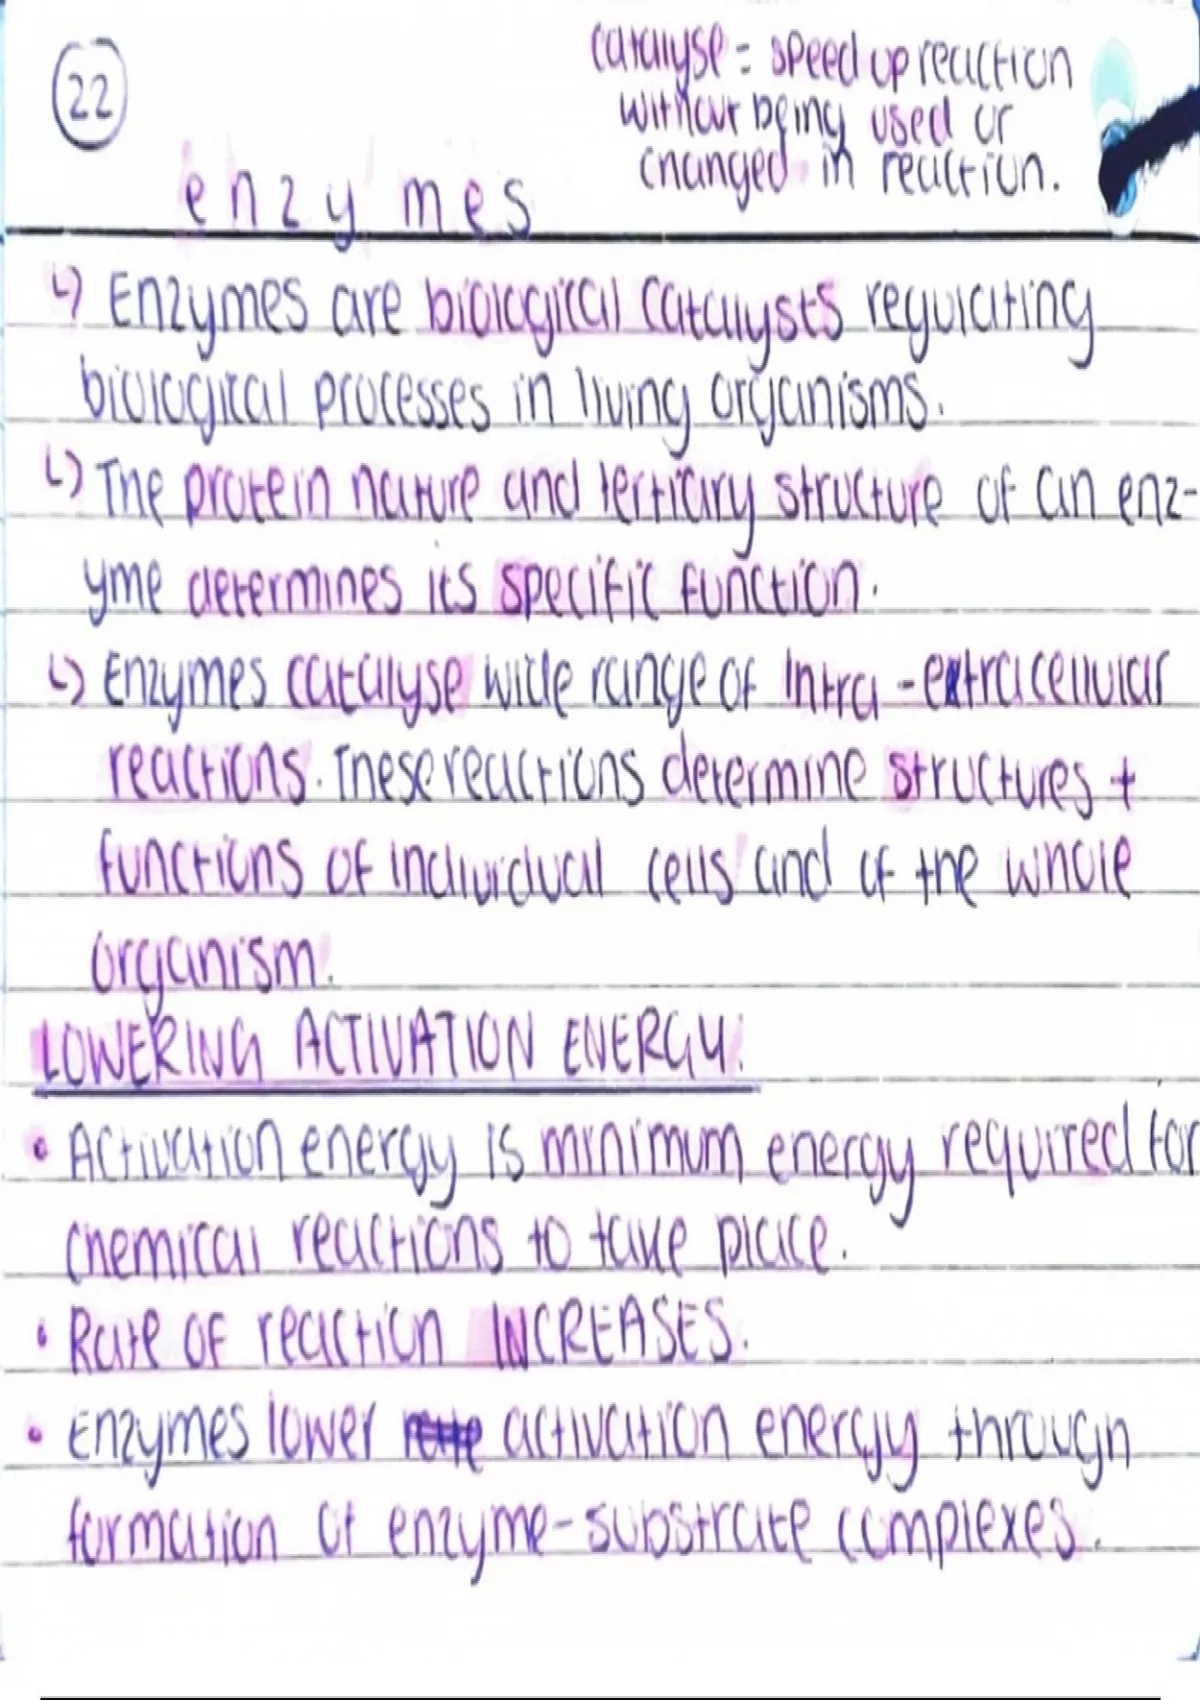 22
catalyse = speed up reaction
without being used or
changed in reaction.
enzymes
↳ Enzymes are biological catalysts regulating
biological processes in living organisms.
↳ The protein nature and tertiary structure of an enz-
yme determines its specific function.
↳ Enzymes catalyse wide range of intra-extracellular
reactions. These reactions determine structures +
functions of individual cells and of the whole
organism.
LOWERING ACTIVATION ENERGY:
• Activation energy is minimum energy required for
chemical reactions to take place.
• Rate of reaction INCREASES.
• Enzymes lower rate activation energy through
formation of enzyme-substrate complexes.